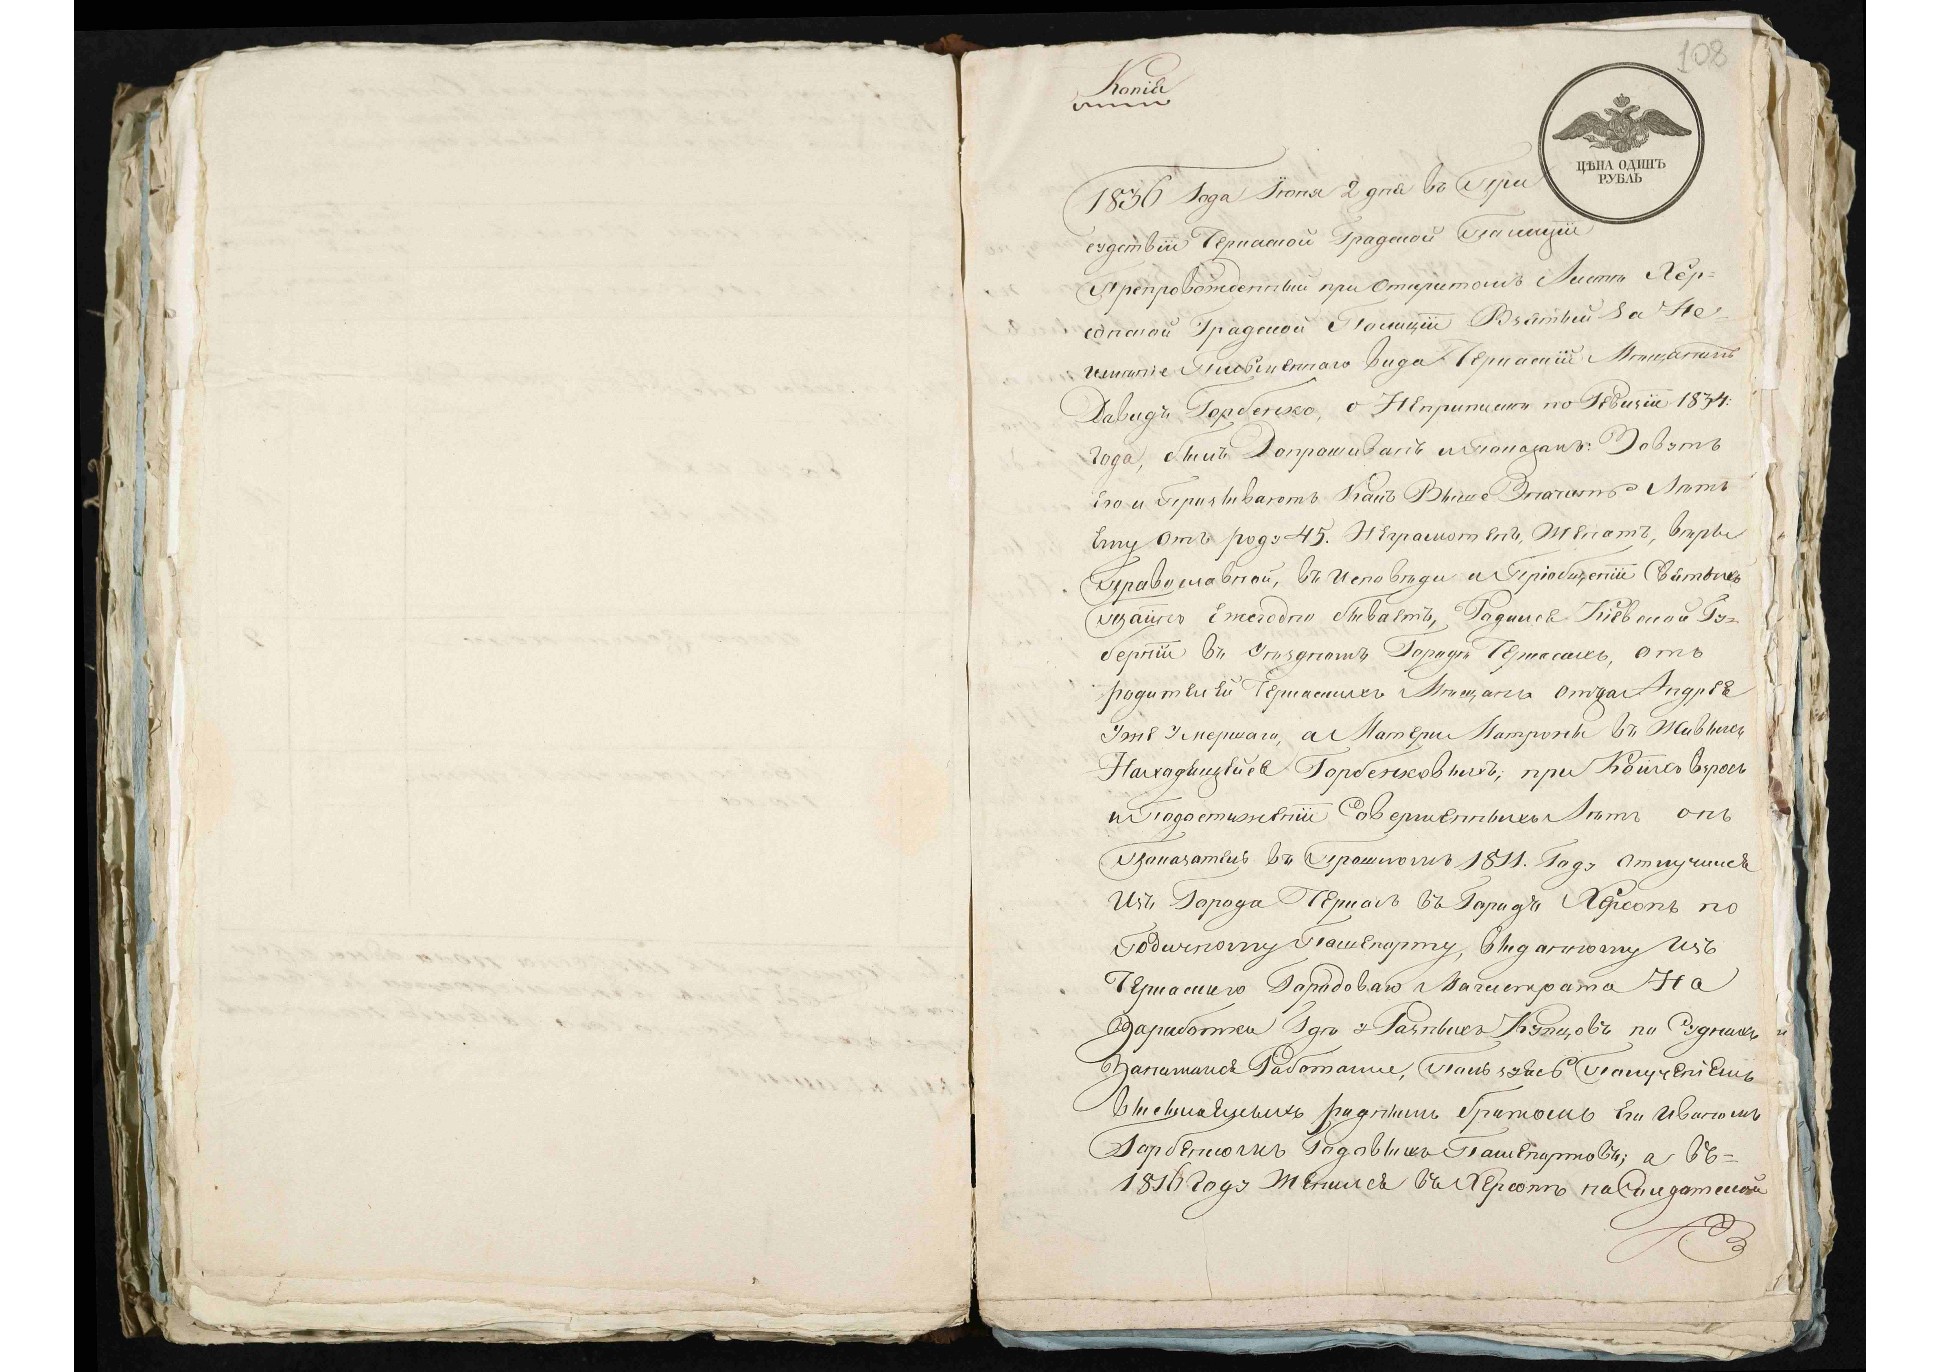 108
Копія
ЦѢНА ОДИНЪ
РУБЛЬ
1836 Года Іюня 2 дня въ При
судствіи Черкаской Градской Полиціи
Препровожденный при Открытомъ Листѣ Хер=
сонской Градской Полиціи Взятый за Не=
имѣніе Писменнаго вида Черкаскій Мѣщанинъ
Давидъ Горбенко, о Неприписки по Ревизіи 1834:
года, былъ Допрошиванъ и показалъ: Зовутъ
Его и Призываютъ Какъ Выше Значитъ Лѣтъ
Ему Отъ роду 45. Неграмотенъ, Женатъ, вѣры
Православной, въ исповѣди и Пріобщеніи Святыхъ
Таинъ Ежегодно бываетъ, Родился Кіевской Гу=
берніи въ Уѣздномъ Городѣ Черкасахъ, отъ
родителей Черкаскихъ Мѣщанъ отца Андрея
Уже Умершаго, а Матери Матроны въ Живыхъ
Находящейся Горбенковыхъ; при Коихъ взросъ
и Подостиженіи Совершенныхъ Лѣтъ онъ
Показатель въ Прошломъ 1811. Году Отлучился
Изъ Города Черкасъ въ Городъ Херсонъ по
Годичному Пашпорту, выданному Изъ
Черкаскаго Городоваго Магистрата На
Заработки Гдѣ у Разныхъ Купцовъ по Суднахъ
Занимался Работами, Пользуясь Полученіемъ
высылаемыхъ роднымъ братомъ Его Иваномъ
Горбенкомъ Годовыхъ Пашпортовъ; а въ=
1816 Году Женился въ Херсонѣ на Солдатской